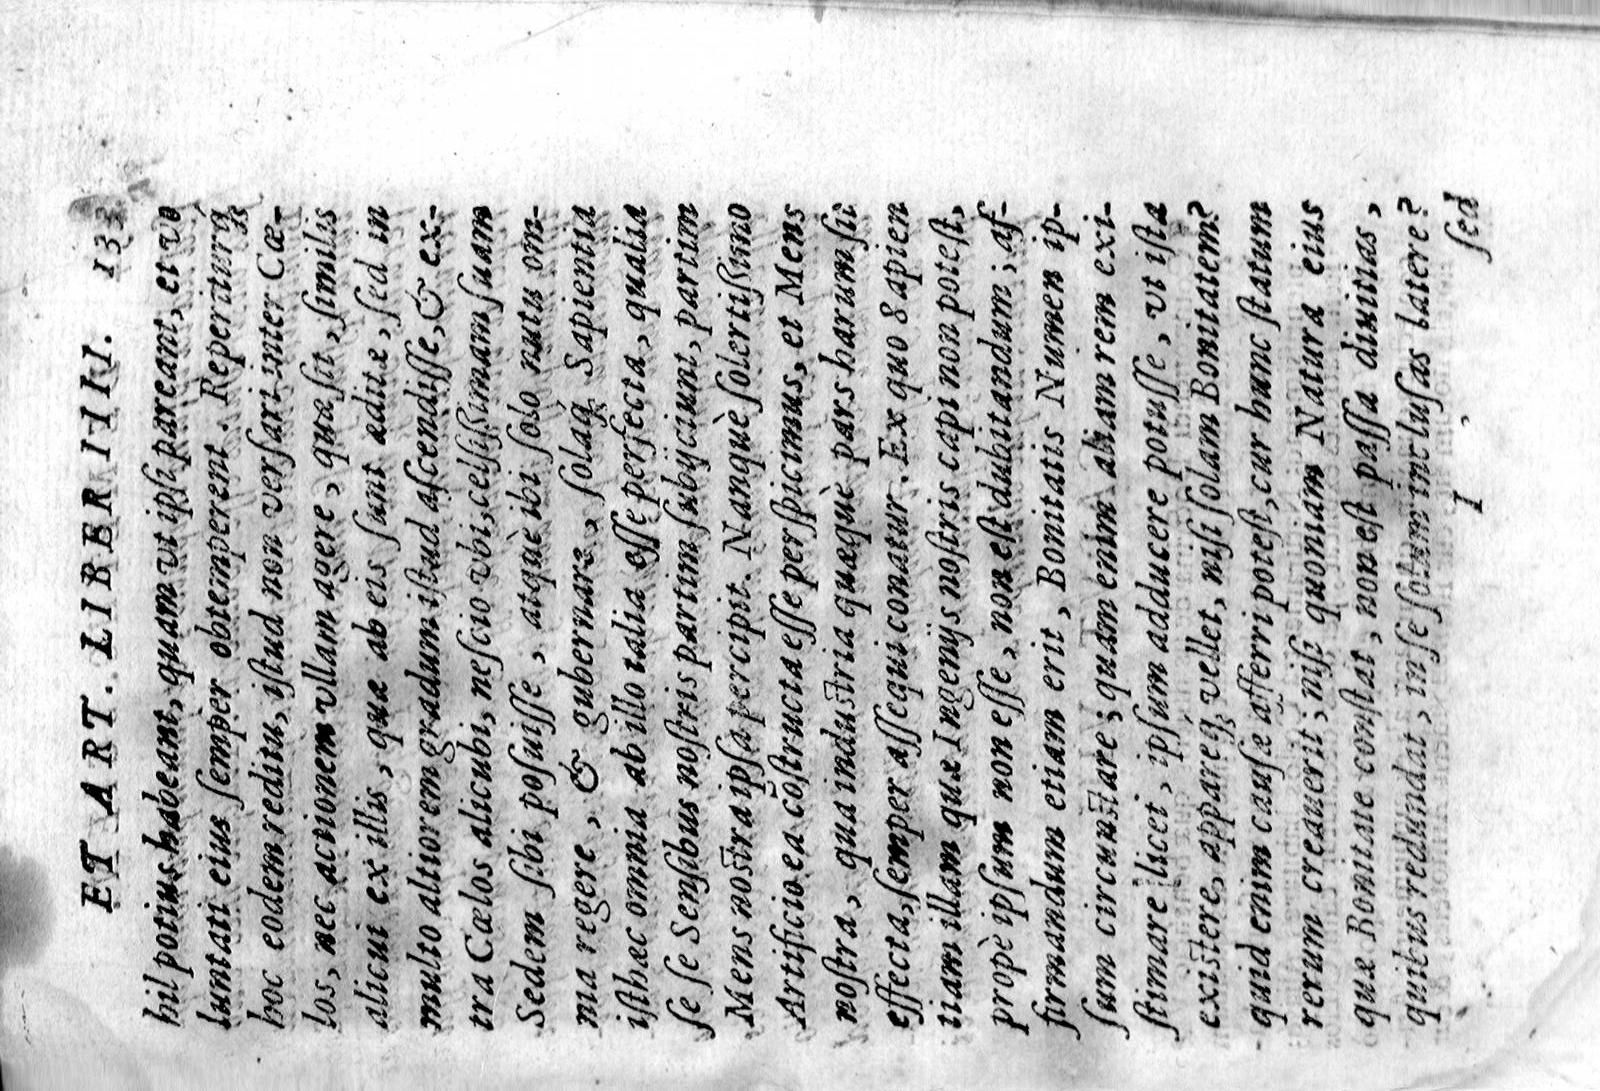 ET ART. LIBER IIII. 133
hil potius habeant, quam vt ipſi pareant, et vo
luntati eius ſempèr obtemperent. Reperiturq́;
hoc eodem reditu, iſtud non verſari inter Cæ-
los, nec actionem vllam agere, quæ ſit, ſimilis
alicui ex illis, quæ ab eis ſunt æditæ, ſed in
multo altiorem gradum iſtud aſcendiſſe, & ex-
tra Cælos alicubi, neſcio vbi, celſiſſimam ſuam
Sedem ſibi poſuiſſe, atquè ibi ſolo nutu om-
nia regere, & gubernare, ſolaq́; Sapientia
iſthæc omnia ab illo talia eſſe perfecta, qualia
ſe ſe Senſibus noſtris partim ſubijciunt, partim
Mens noſtra ipſa percipit. Nanquè ſolertiſſimo
Artificio ea cõſtructa eſſe perſpicimus, et Mens
noſtra, qua induſtria quæquè pars harum ſit
effecta, ſemper aſſequi conatur. Ex quo Sapien
tiam illam quæ Ingenijs noſtris capi non poteſt,
propè ipſum non eſſe, non eſt dubitandum; af-
firmandum etiam erit, Bonitatis Numen ip-
ſum circunſtare; quam enim aliam rem exi-
ſtimare licet, ipſum adducere potuiſſe, vt iſta
exiſtere, appareq́; vellet, niſi ſolam Bonitatem?
quid enim cauſæ afferri poteſt, cur hunc ſtatum
rerum creauerit; niſi quoniam Natura eius
quæ Bonitate conſtat, non eſt paſſa diuitias,
quibus redundat, in ſe ſolum incluſas latere?
I ſed